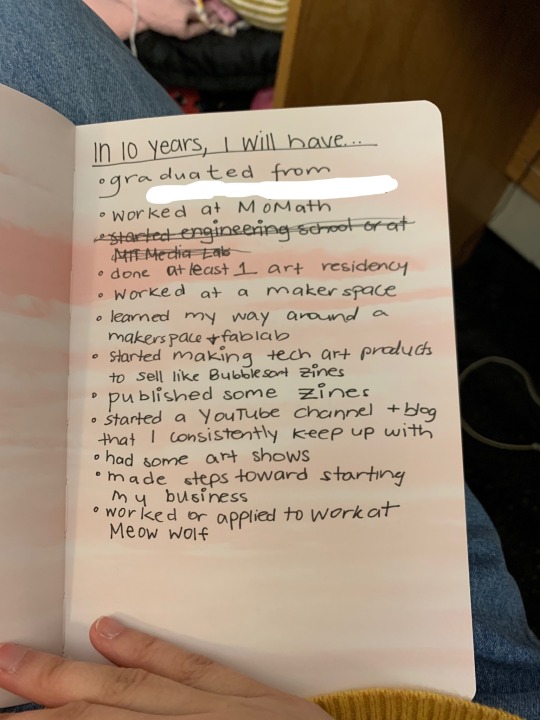 In 10 years, I will have...
• graduated from
• worked at MoMath
• started engineering school or at
MIT Media Lab
• done at least 1 art residency
• worked at a makerspace
• learned my way around a
makerspace + fablab
• started making tech art products
to sell like Bubblesort zines
• published some zines
• started a YouTube channel + blog
that I consistently keep up with
• had some art shows
• made steps toward starting
my business
• worked or applied to work at
Meow Wolf